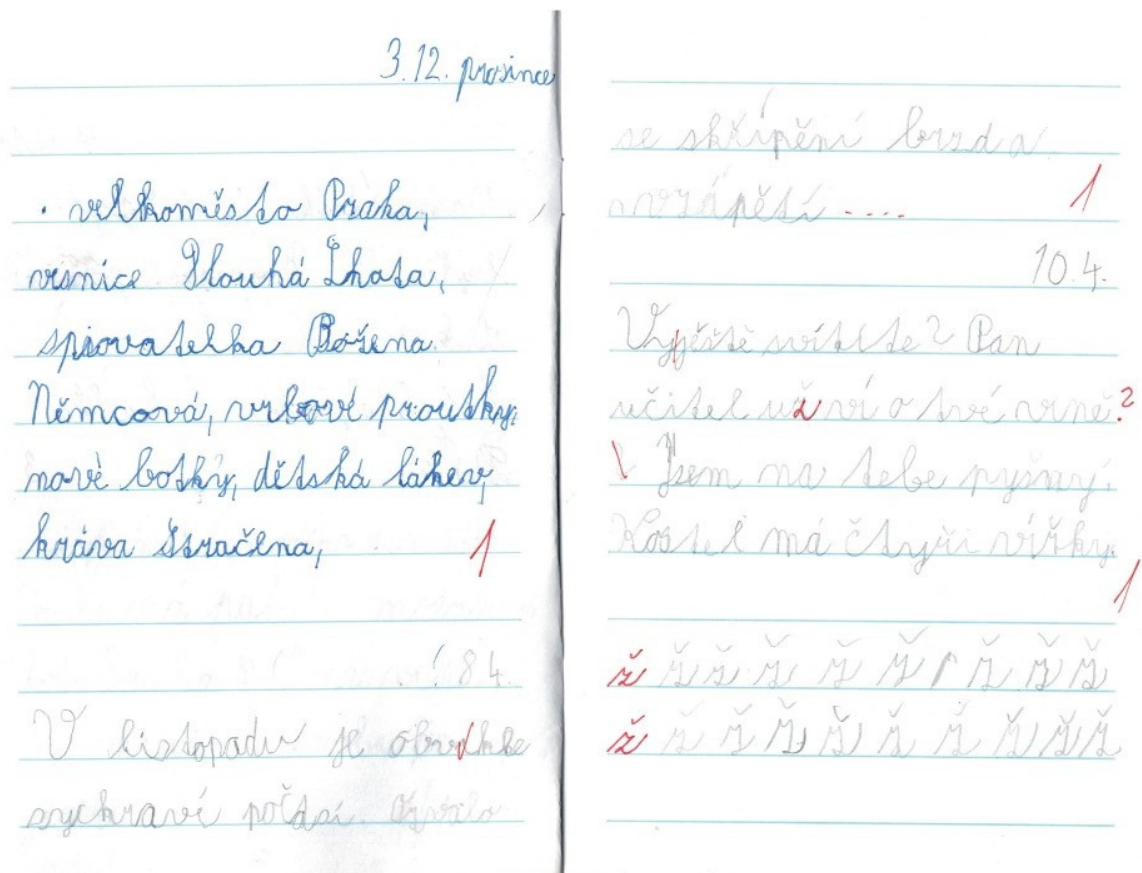 3.12. prosince
velkoměsto Praha,
visnice Dlouhá Lhota,
spisovatelka Božena
Němcová, vrbové proutky,
nové botky, dětská láhev,
kráva Stračena,
1
8 4.
V listopadu je obvykle
sychravé počasí. Ozvalo
se skřípění brzd a
vzápětí ....
1
10.4.
Vy ještě svítíte? Pan
učitel už ví o tvé vině?
Jsem na tebe pyšný.
Kostel má čtyři vížky.
1
ž ž ž ž ž ž ž ž ž ž
ž ž ž ž ž ž ž ž ž ž